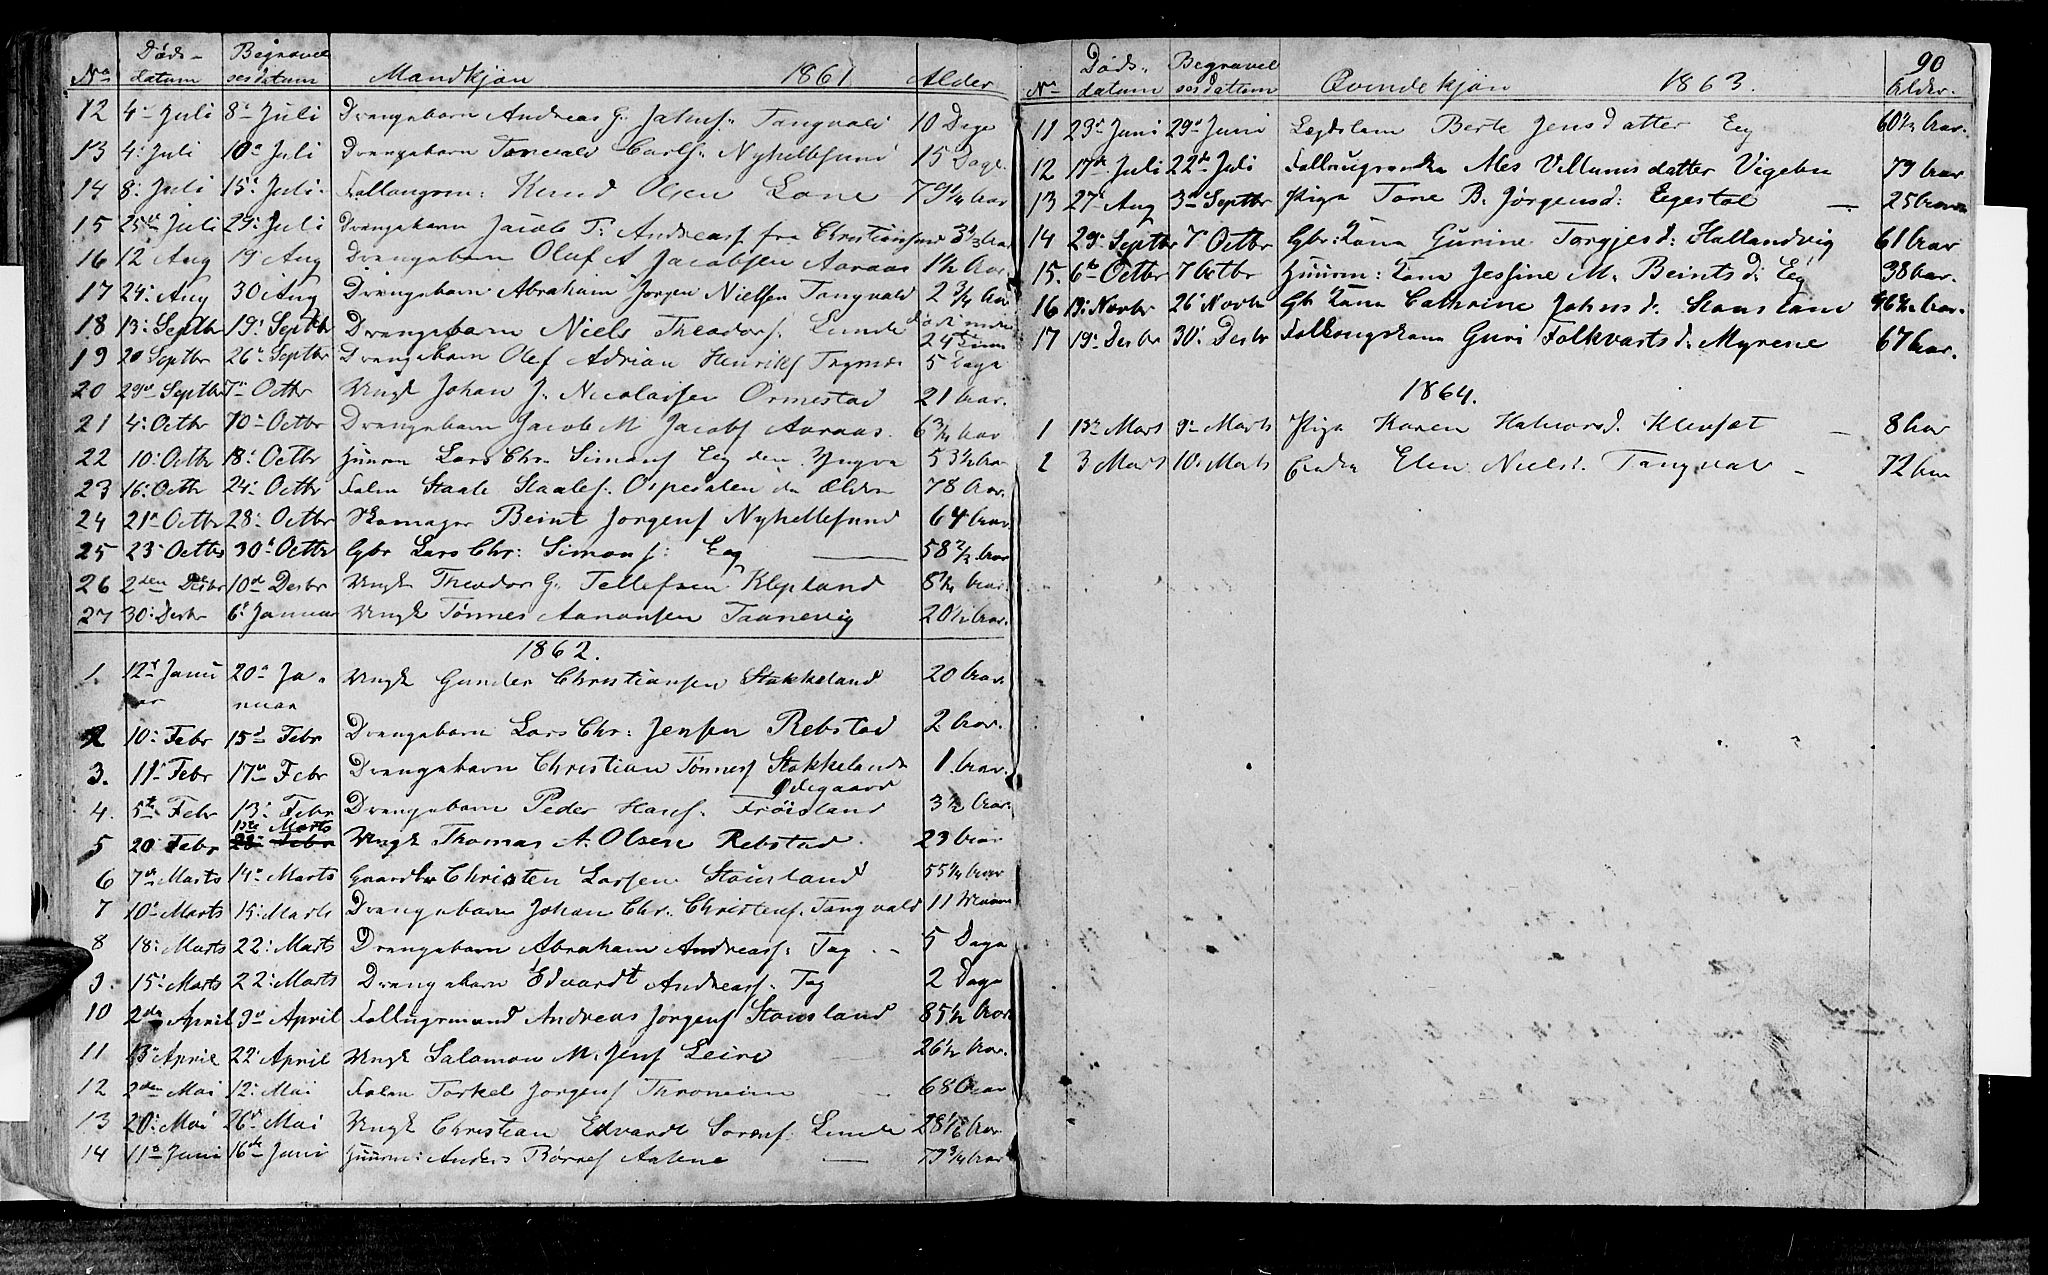 No Døds- datum Begravel sesdatum Mandkjøn 1861 Alder
12 4. Juli 8. Juli Drengebarn Andreas G. Jahnf. Tangvald 10 Dage
13 4. Juli 10. Juli Drengebarn Torvald Carlf. Nyhellesund 15 Dage
14 8. Juli 15. Juli Knud Olsen Lone 79¼ Aar
15 25de Juli 29. Juli Drengebarn Jacob T. Andreasf fra Christiansand 3⅓ Aar
16 12 Aug 19 Aug Drengebarn Oluf A Jacobsen Aaraas 1½ Aar
17 24. Aug 30 Aug Drengebarn Abraham Jørgen Nielsen Tangvald 2¾ Aar
18 13. Septbr 19. Septbr Drengebarn Niels Theodorf. Lunde
24 Timer
19 20 Septbr 26. Septbr Drengebarn Olef Adrian Henriksf 5 Dage
20 29. Septbr 7. Octbr Ungk Johan J. Nicolaisen Ormestad 21 Aar.
21 4. Octbr 10. Octbr Drengebarn Jacob M Jacobf Aaraas. 6¾ Aar
22 10. Octbr 18. Octbr Lars Chr. Simonf Eeg den Yngre 53½ Aar
23 16. Octbr 24. Octbr Staale Staalef. Ospedalen Ældre 78 Aar.
24 21. Octbr 28. Octbr Skomager Beint Jørgenf Nyhellesund 64 Aar.
25 23. Octbr 30. Octbr Gbr Lars Chr: Simonf: Eeg 58½ Aar
26 2den Desbr 10de Desbr Ungk Theodor G. Tellefsen Klepland 8½ Aar.
27 30. Desbr 6. Januar Ungk Tønnes Aanonsen Taanevig 20½ Aar.
1862.
1. 12. Janu 20. Ja- Ungk Gunder Christiansen Stokkeland 20 Aar.
ar nuar
2 10. Febr 15. Febr Drengebarn Lars Chr. Jensen Rebstad 2 Aar.
3. 11. Febr 17. Febr Drengebarn Christian Tønnesf Stokkeland 1 Aar.
Ødegaard
4. 5te Febr 13. Febr Drengebarn Peder Hansf. Frøisland 3½ Aar.
1ste Marts
5 20. Febr 28. Febr Ungk Thomas A. Olsen Rebstad. 23 Aar
6 7de Marts 14. Marts Gaardbr Christen Larsen Stousland 55¼ Aar
7 10. Marts 15. Marts Drengebarn Johan Chr. Christenf. Tangvald 11
8 18. Marts 22. Marts Drengebarn Abraham Andreasf. Tag - 5 Dage
9. 15. Marts 22. Marts Drengebarn Edvardt Andreasf. Tag 2 Dage
10 2de April 9. April Andreas Jørgenf Stousland 85½ Aar
11 13. April 22. April Ungk Salamon M. Jenf Leire 26½ Aar.
12 2den Mai 12. Mai Torkel Jørgenf Throneim 68 Aar
13 20. Mai 26. Mai Ungk Christian Edvardt Sørenf. Lunde 28 1/6 Aar
14 11. Juni 16de Juni Huusm: Anders Børresf Aalene 79¾ Aar
90
No Døds- datum Begravel sesdattum Qvindekjøn 1863. Alder.
11 23. Juni 29. Juni Lægdslem Berte Jensdatter Eeg 60½ Aar.
12 17de Juli 22de Juli Villumsdatter Vigebu 79 Aar
13 27. Aug 3. Septbr Piga Tone B. Jørgensd: Egestøl 25 Aar
14 29. Septbr 7. Octbr Gbr: Kona Gurine Torgjesd: Hallandvig 61 Aar
15. 6te Octbr 7 Octbr Huusm: Kona Jessine M. Beintsd: Eeg 38 Aar.
16 19. Novbr 26. Novbr Gb Kona Cathrine Johnsd. Stousland 46½ Aar.
17 19. Desbr 30. Desbr Guri Folkvartsd. Myrene 67 Aar.
1864.
1 1ste Marts 9. Marts Piga Karen Halvorsd. Klepset - 8 Aar
2 3 Marts 10. Marts Enke Elen Nielsd. Tangval - 72 Aar